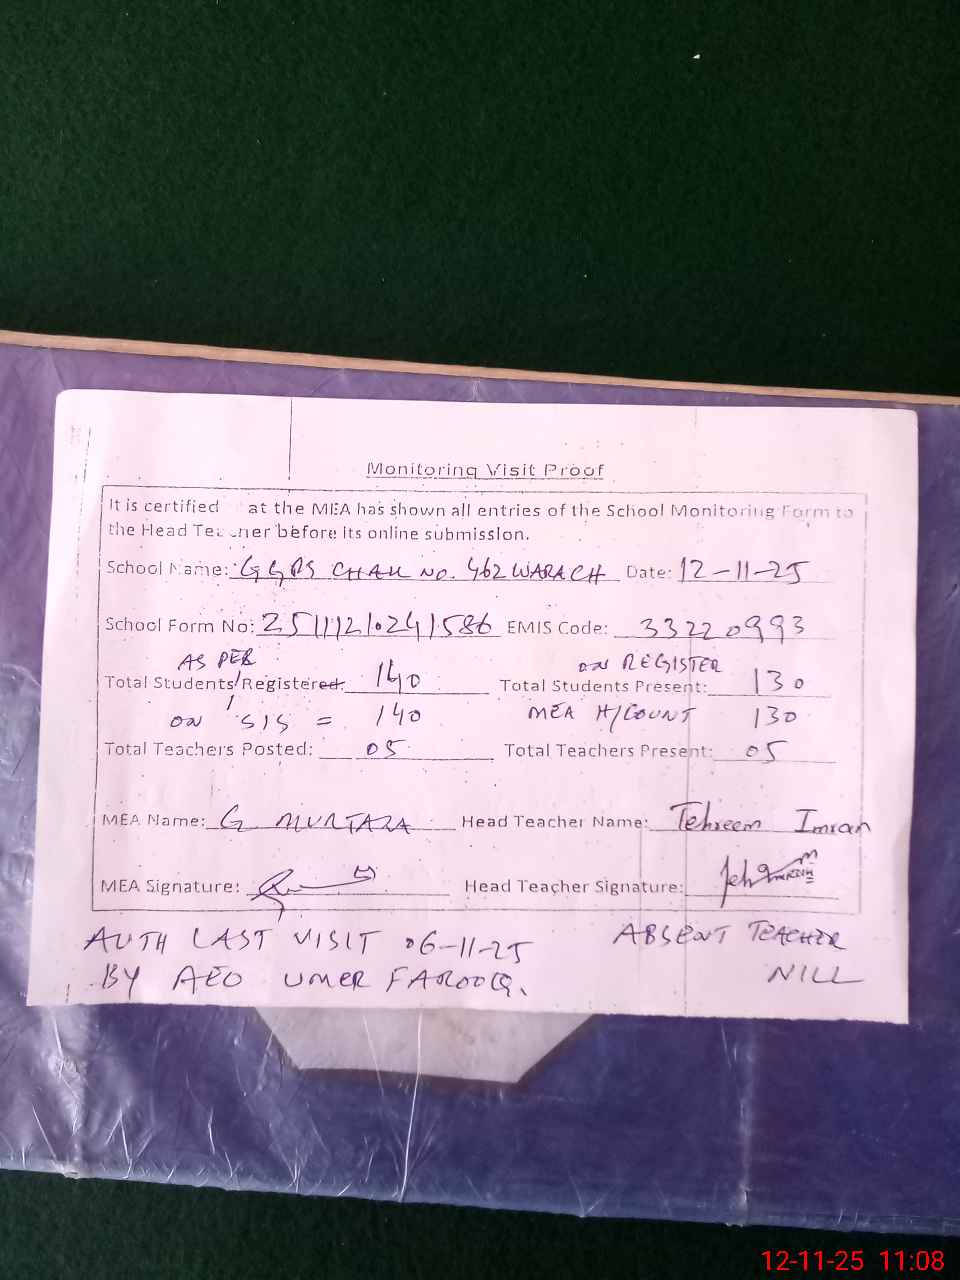 Monitoring Visit Proof
It is certified at the MEA has shown all entries of the School Monitoring Form to
the Head Teacher before its online submission.
School Name: GGPS CHAK NO. 462 WARACH Date: 12-11-25
School Form No: EMIS Code: 33220993
AS PER ON REGISTER
Total Students/Registered: 140 Total Students Present: 130
ON SIS = 140 MEA H/COUNT 130
Total Teachers Posted: 05 Total Teachers Present: 05
MEA Name: G MURTAZA Head Teacher Name: Tehreem Imran
MEA Signature: Head Teacher Signature:
AUTH LAST VISIT 06-11-25 ABSENT TEACHER
BY AEO UMER FAROOQ. NILL
12-11-25 11:08